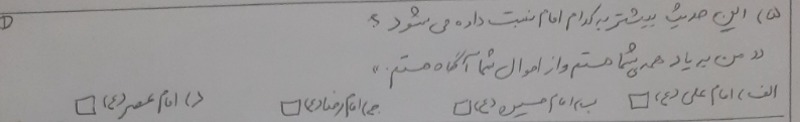 ۵) این حدیث بیشتر به کدام امام نسبت داده می شود؟
«من به یاد همه شما هستم و از احوال شما آگاه هستم.»
الف) امام علی (ع) □ ب) امام حسین (ع) □ ج) امام رضا (ع) □ د) امام عصر (ع) □